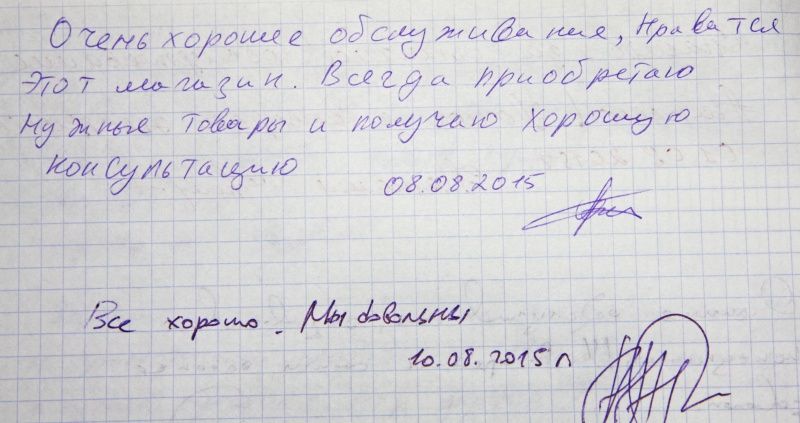 Очень хорошее обслуживание, Нраватся
этот магазин. Всегда приобретаю
нужные товары и получаю хорошую
консультацию
08.08.2015
Все хорошо. Мы довольны
10.08.2015г